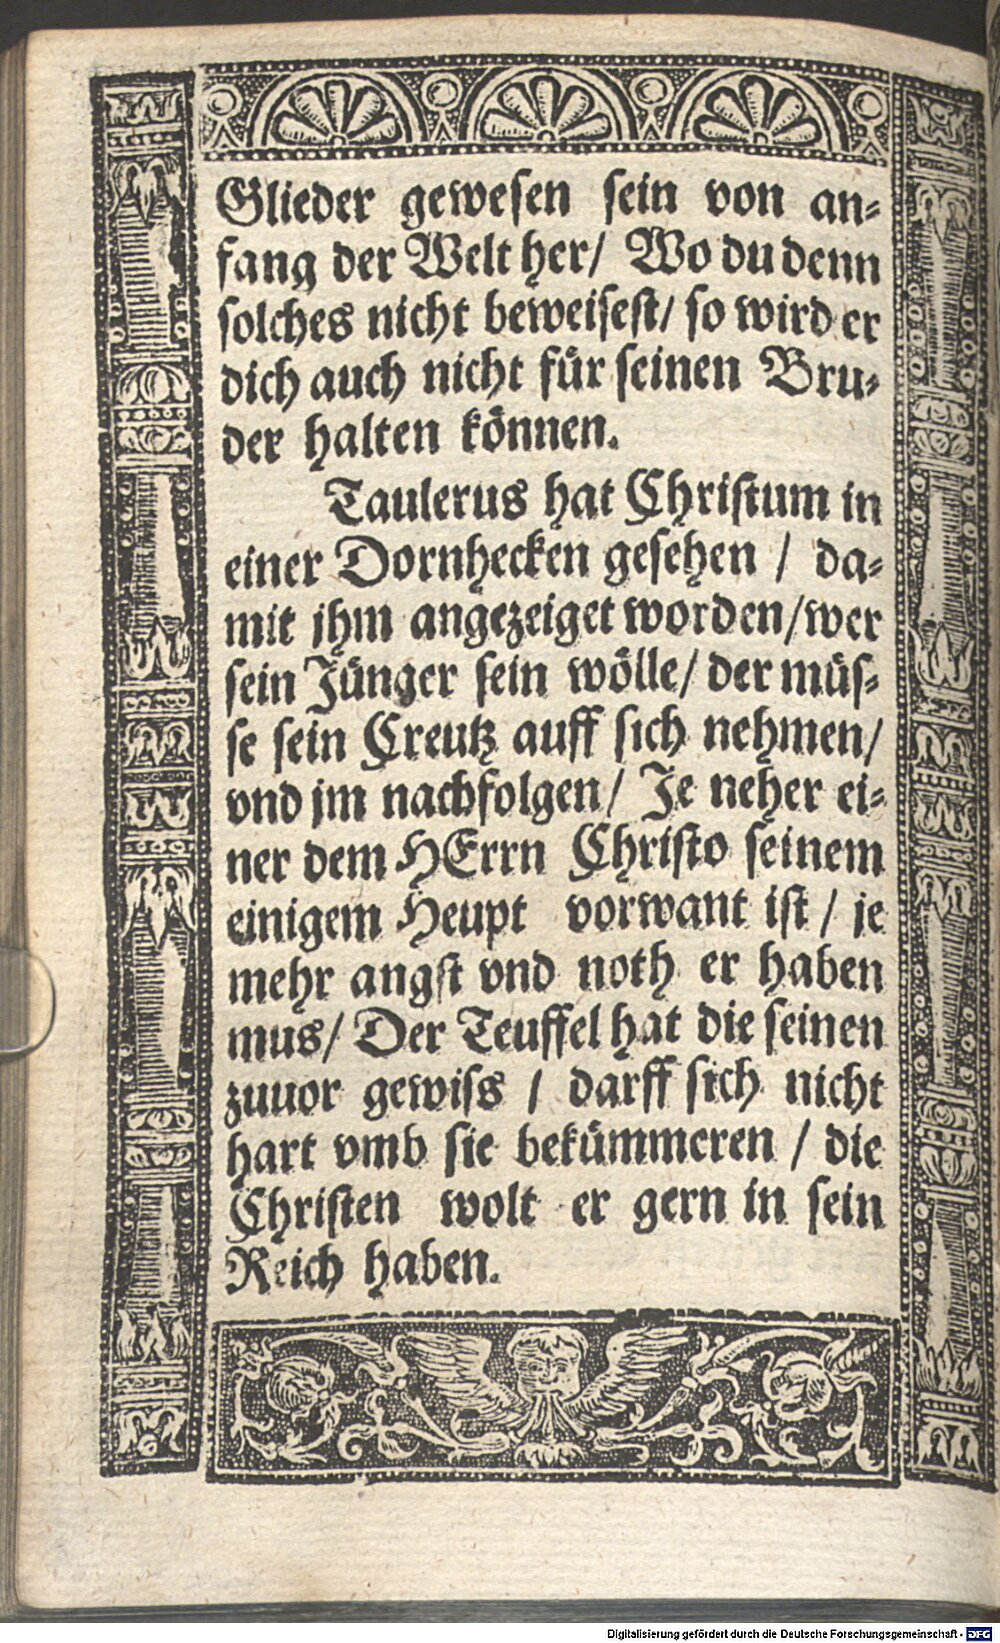 Glieder gewesen sein von an-
fang der Welt her/ Wo du denn
solches nicht beweisest/ so wird er
dich auch nicht für seinen Bru-
der halten können.
Taulerus hat Christum in
einer Dornhecken gesehen / da-
mit jhm angezeiget worden/wer
sein Jünger sein wölle/ der müs-
se sein Creutz auff sich nehmen/
vnd jm nachfolgen/ Je neher ei-
ner dem HErrn Christo seinem
einigem Heupt vorwant ist / je
mehr angst vnd noth er haben
mus/ Der Teuffel hat die seinen
zuuor gewiss / darff sich nicht
hart vmb sie bekümmeren / die
Christen wolt er gern in sein
Reich haben.
Digitalisierung gefördert durch die Deutsche Forschungsgemeinschaft - DFG